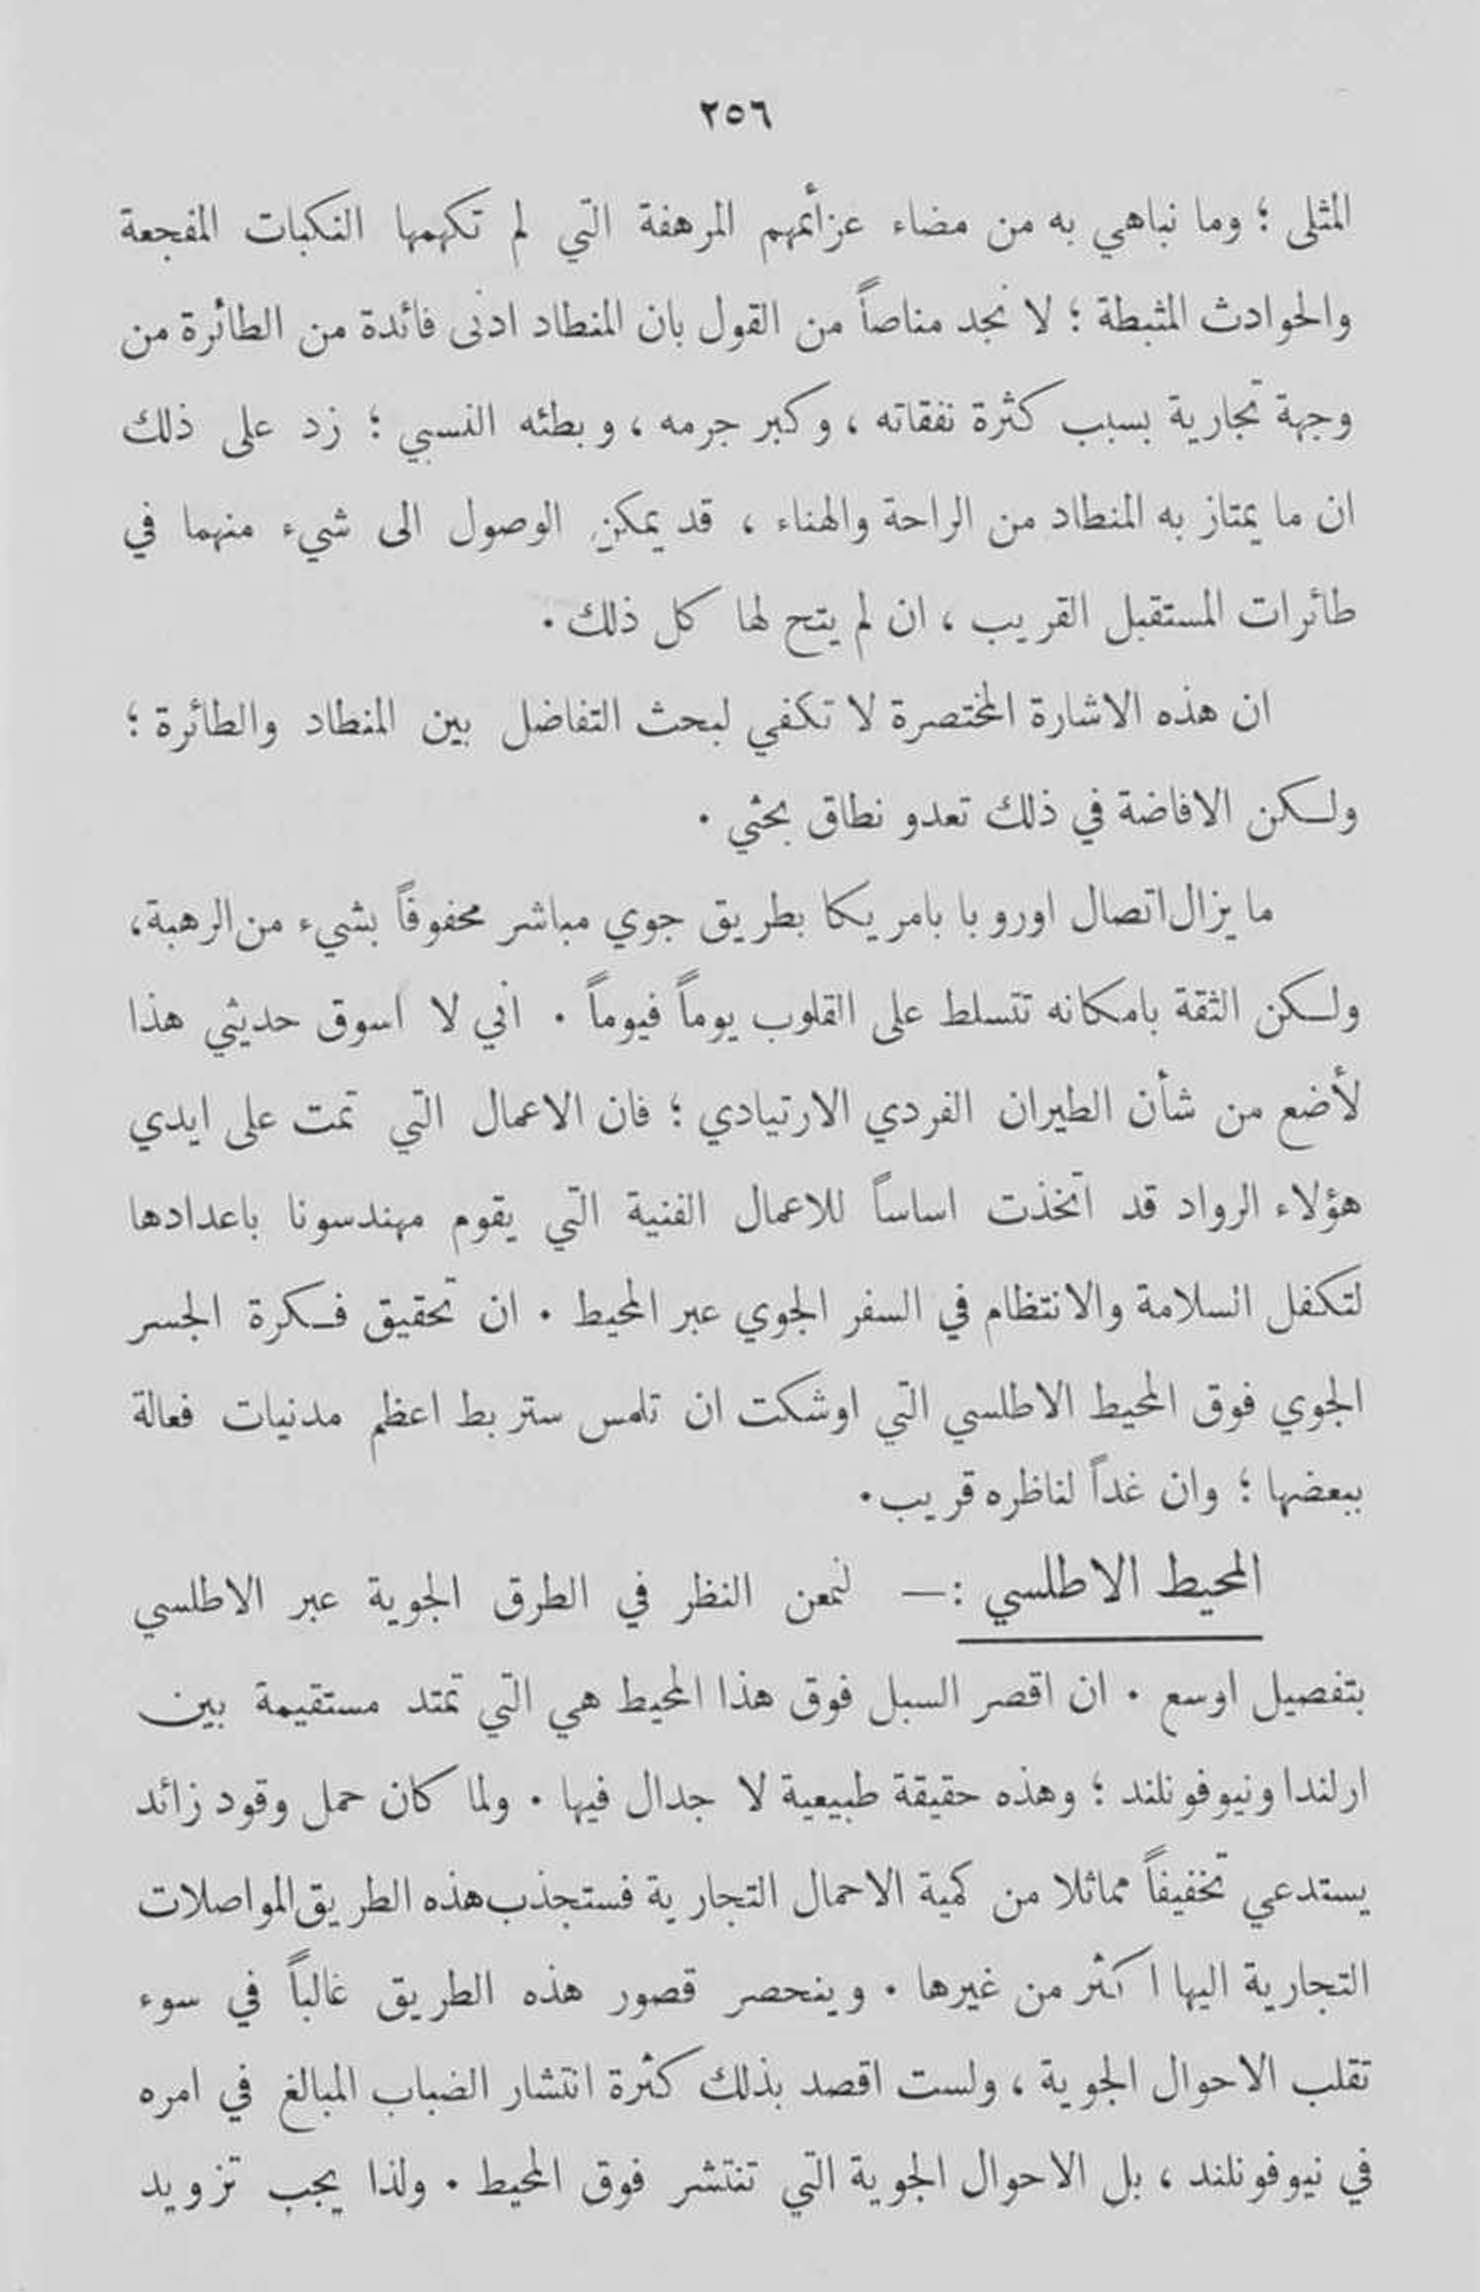 ٢٥٦
المثلى ؛ وما نباهي به من مضاء عزأئمهم المرهفة التي لم تكهمها النكبات المفجعة
والحوادث المثبطة ؛ لا نجد مناصاً من القول بان المنطاد ادنى فائدة من الطائرة من
وجهة تجارية بسبب كثرة نفقاته ، وكبر جرمه ، وبطئه النسبي ؛ زد على ذلك
ان ما يمتاز به المنطاد من الراحة والهناء ، قد يمكن الوصول الى شيء منهما في
طائرات المستقبل القريب ، ان لم يتح لها كل ذلك .
ان هذه الاشارة المختصرة لا تكفي لبحث التفاضل بين المنطاد والطائرة ؛
ولكن الافاضة في ذلك تعدو نطاق بحثي .
ما يزال اتصال اوروبا بامريكا بطريق جوي مباشر محفوفاً بشيء من الرهبة ،
ولكن الثقة بامكانه تتسلط على القلوب يوماً فيوماً . اني لا اسوق حديثي هذا
لأضع من شأن الطيران الفردي الارتيادي ؛ فان الاعمال التي تمت على ايدي
هؤلاء الرواد قد اتخذت اساساً للاعمال الفنية التي يقوم مهندسونا باعدادها
لتكفل السلامة والانتظام في السفر الجوي عبر المحيط . ان تحقيق فكرة الجسر
الجوي فوق المحيط الاطلسي التي اوشكت ان تلمس ستربط اعظم مدنيات فعالة
ببعضها ؛ وان غداً لناظره قريب .
المحيط الاطلسي :— لنمعن النظر في الطرق الجوية عبر الاطلسي
بتفصيل اوسع . ان اقصر السبل فوق هذا المحيط هي التي تمتد مستقيمة بين
ارلندا ونيوفونلند ؛ وهذه حقيقة طبيعية لا جدال فيها . ولما كان حمل وقود زائد
يستدعي تخفيفاً مماثلا من كمية الاحمال التجارية فستجذب هذه الطريق المواصلات
التجارية اليها اكثر من غيرها . وينحصر قصور هذه الطريق غالباً في سوء
تقلب الاحوال الجوية ، ولست اقصد بذلك كثرة انتشار الضباب المبالغ في امره
في نيوفونلند ، بل الاحوال الجوية التي تنتشر فوق المحيط . ولذا يجب تزويد